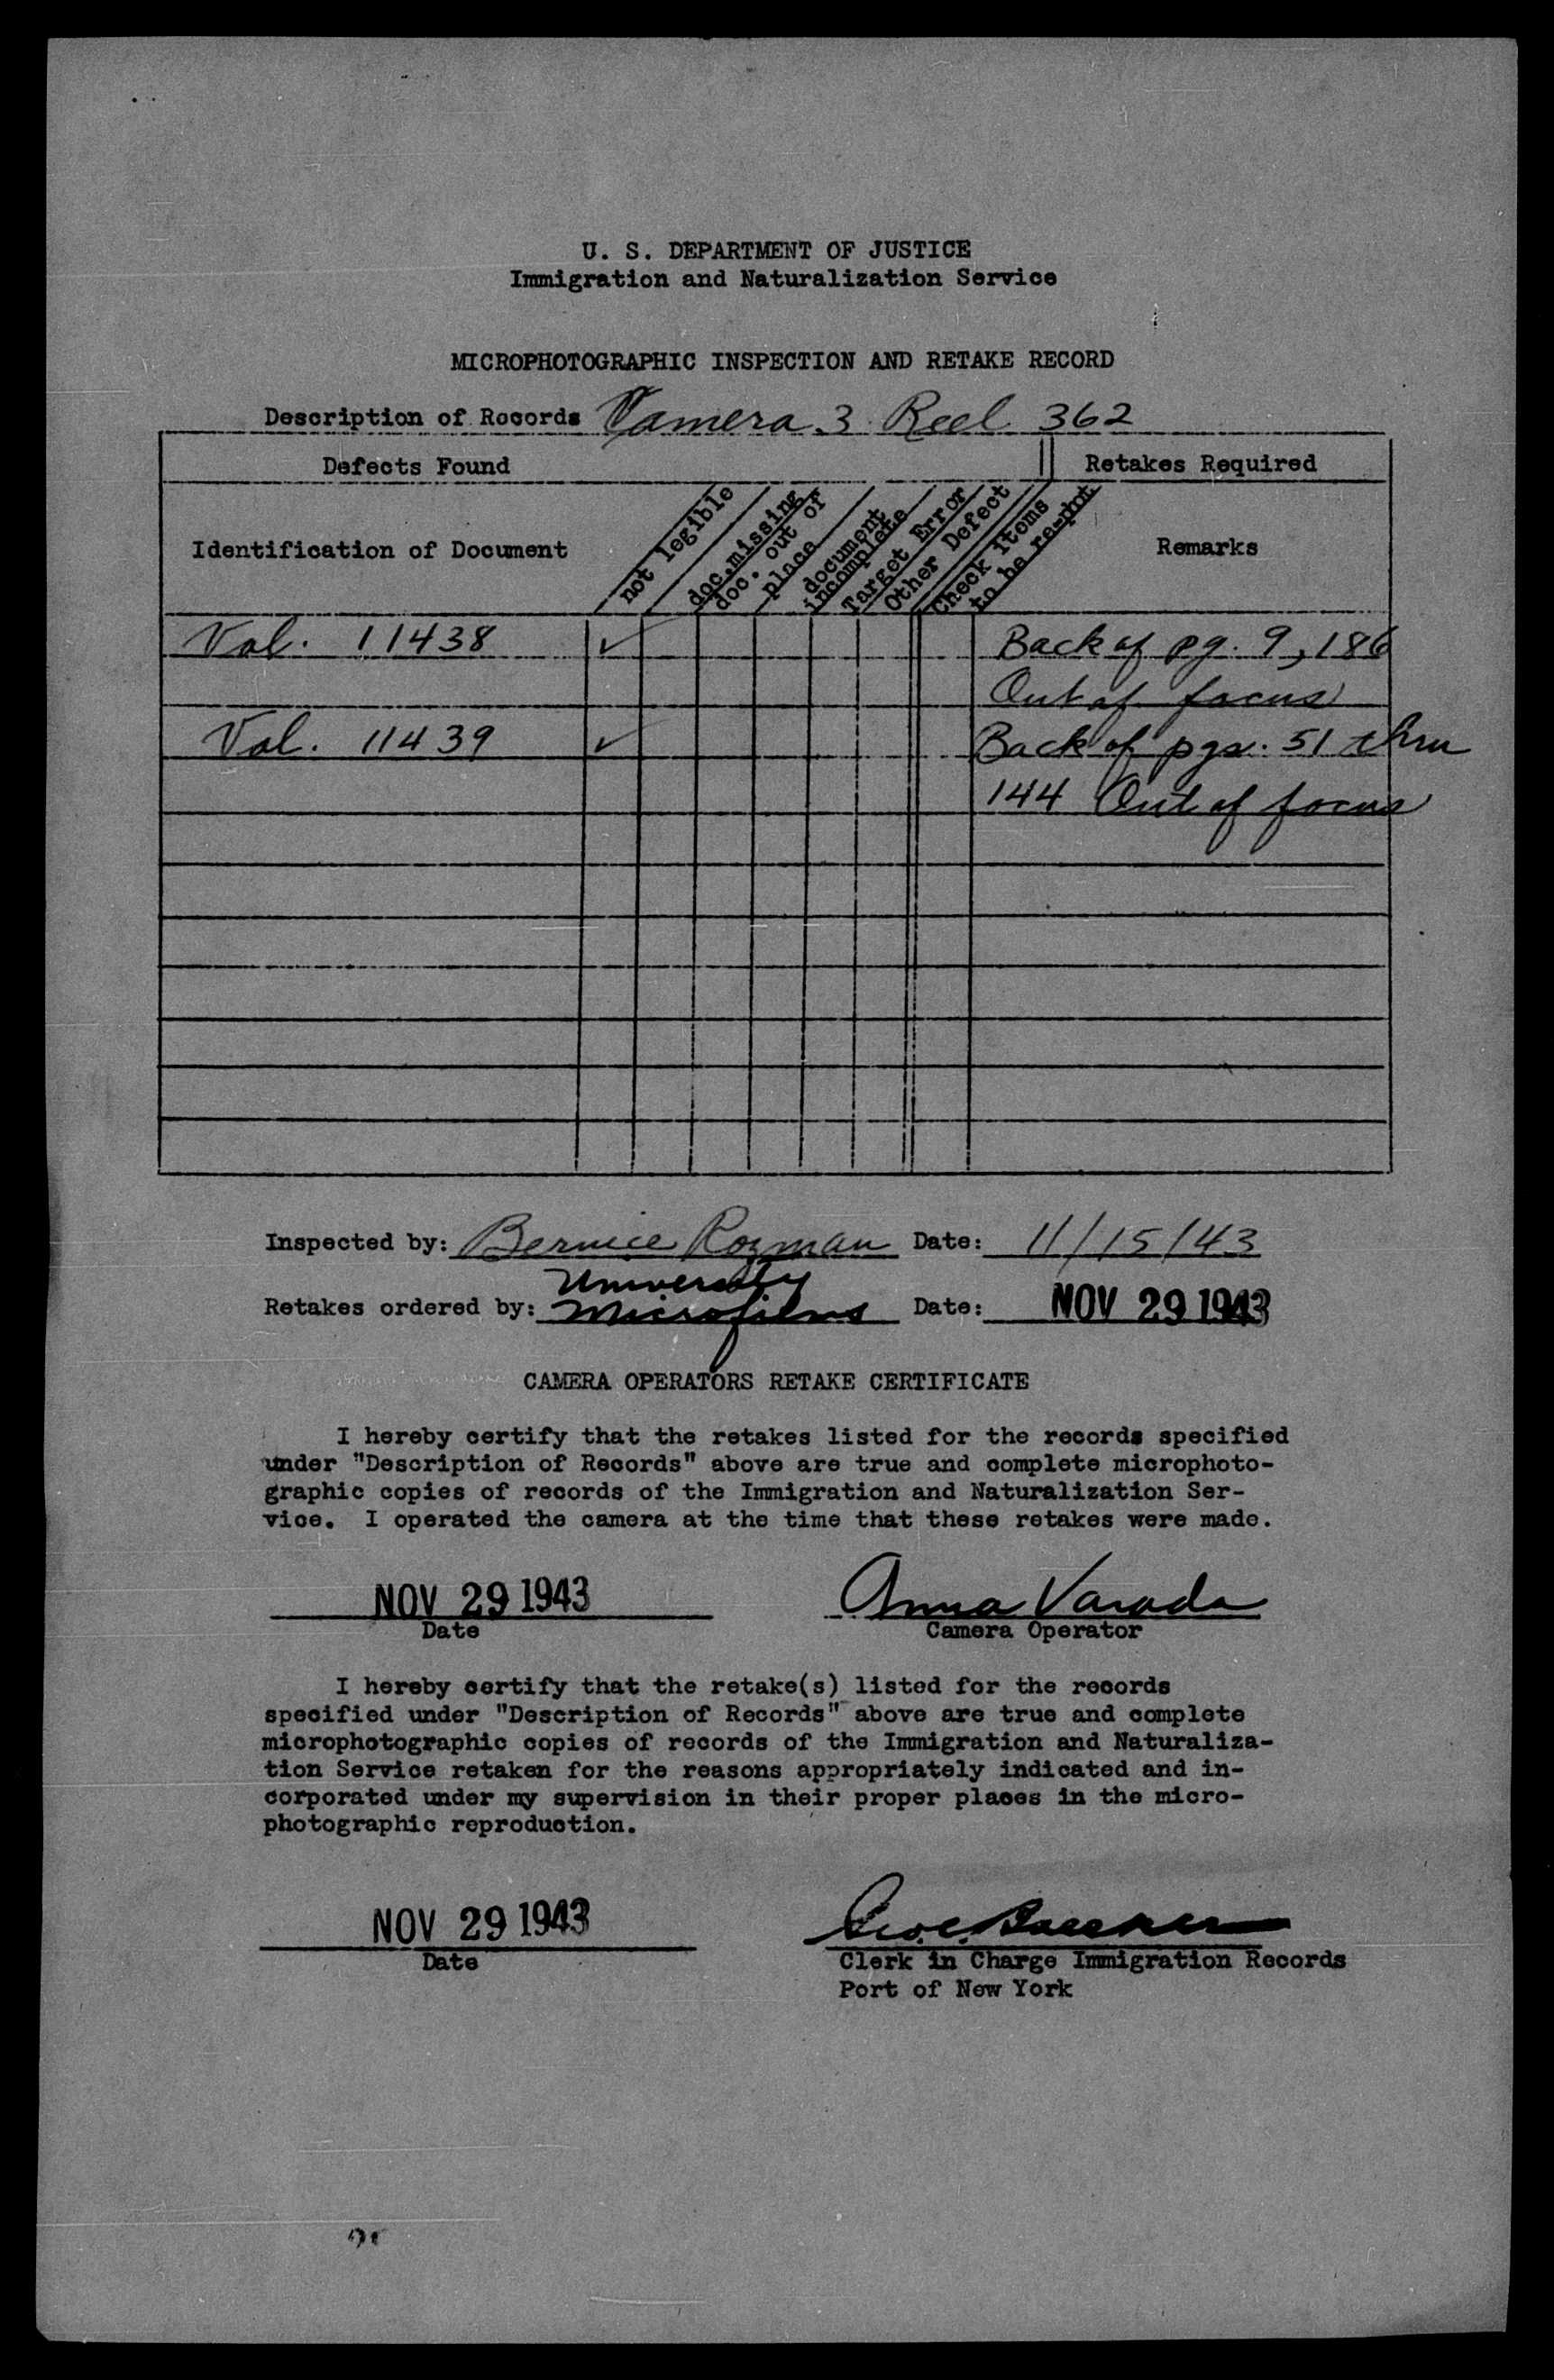 U. S. DEPARTMENT OF JUSTICE
Immigration and Naturalization Service
MICROPHOTOGRAPHIC INSPECTION AND RETAKE RECORD
Description of Records Camera 3 Reel 362
Defects Found
Retakes Required
Identification of Document
not legible
doc. missing
doc. out of
place
document
incomplete
Target Error
Other Defect
Check items
to be re-phot
Remarks
Vol. 11438 ✓ Back of pg. 9, 186
Out of focus
Vol. 11439 ✓ Back of pgs. 51 thru
144 Out of focus
Inspected by: Bernice Rozman Date: 11/15/43
University
Retakes ordered by: Microfilms Date: NOV 29 1943
CAMERA OPERATORS RETAKE CERTIFICATE
I hereby certify that the retakes listed for the records specified
under "Description of Records" above are true and complete microphoto-
graphic copies of records of the Immigration and Naturalization Ser-
vice. I operated the camera at the time that these retakes were made.
NOV 29 1943 Anna Varada
Date Camera Operator
I hereby certify that the retake(s) listed for the records
specified under "Description of Records" above are true and complete
microphotographic copies of records of the Immigration and Naturaliza-
tion Service retaken for the reasons appropriately indicated and in-
corporated under my supervision in their proper places in the micro-
photographic reproduction.
NOV 29 1943
Date Clerk in Charge Immigration Records
Port of New York